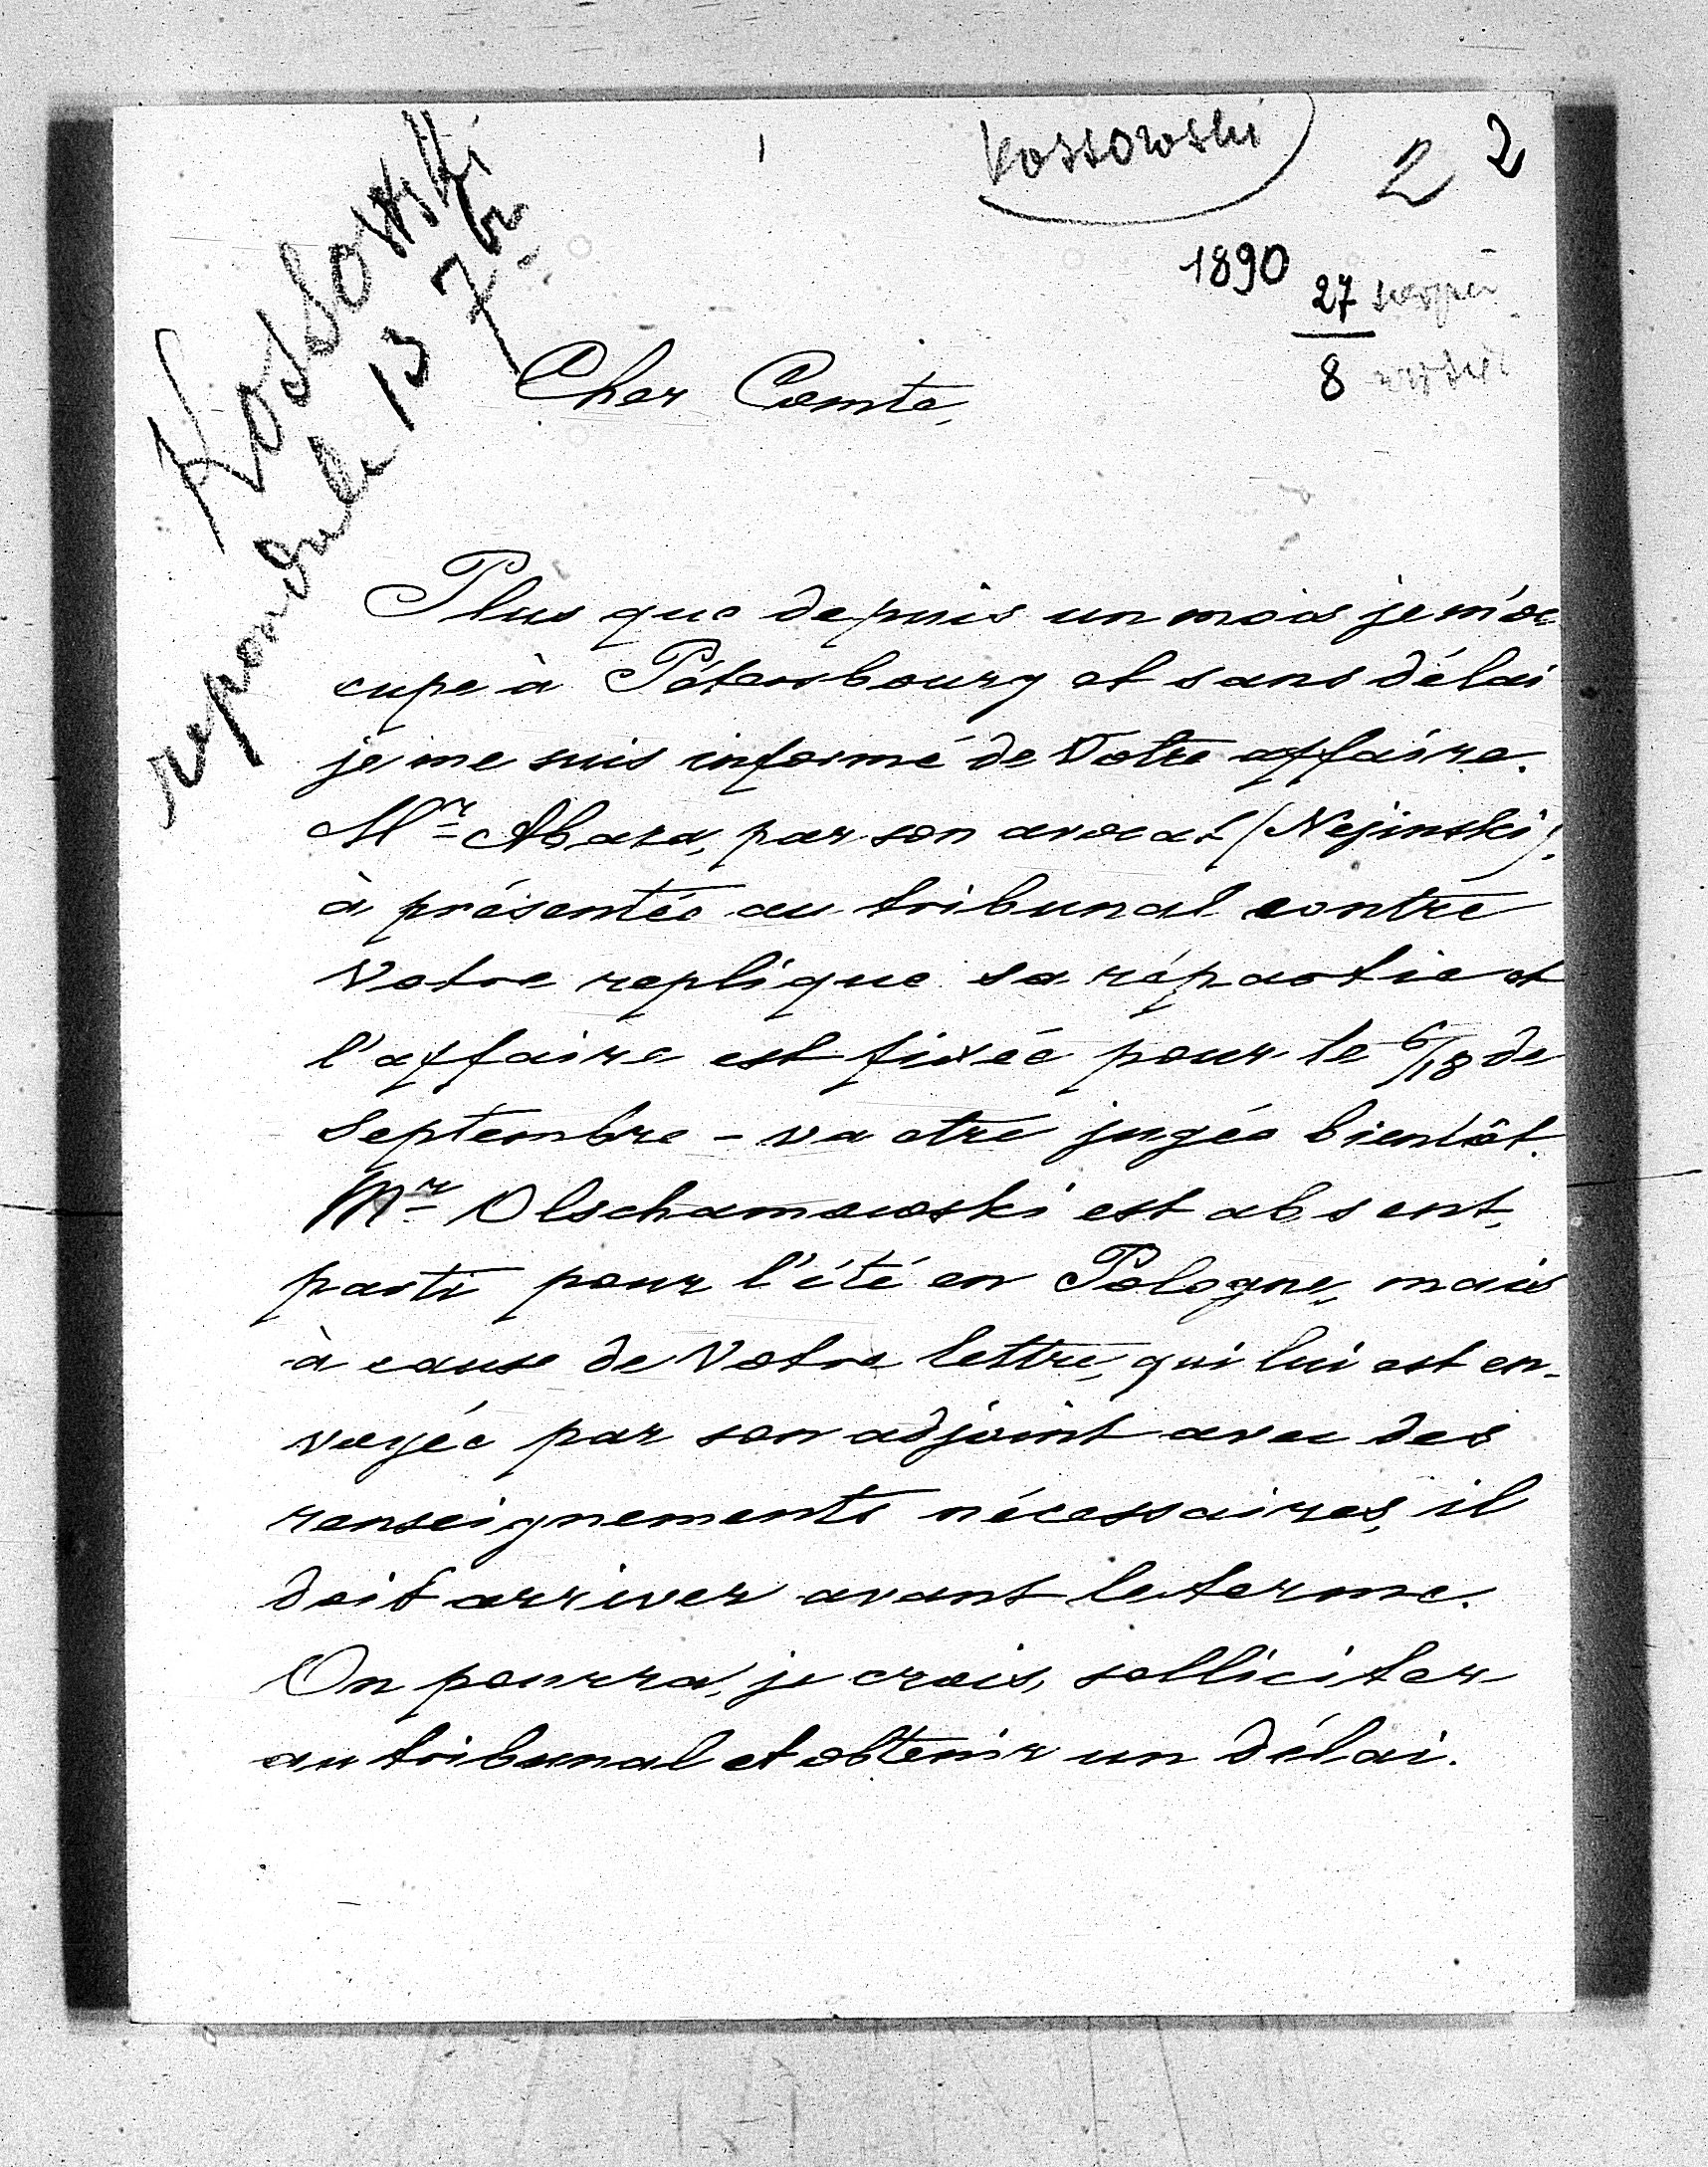 1
Kossowski
2 2
Kossowski
repondu le 13 7br
1890
27 sierpień
8
Cher Comte,
Plus que depuis un mois je m'oc-
cupe à Pétersbourg et sans délai
je me suis informé de Votre affaire.
Mr Abaza, par son avocat (Nejinski),
à présentée au tribunal contre
Votre replique sa répartie et
l'affaire est fixée pour le 6/18 de
Septembre – va etre jugée bientôt.
Mr Olschamowski est absent,
parti pour l'été en Pologne, mais
à cause de Votre lettre, qui lui est en-
voyée par son adjoint avec des
renseignements nécessaires, il
doit arriver avant le terme.
On pourra, je crois, solliciter
au tribunal et obtenir un délai.